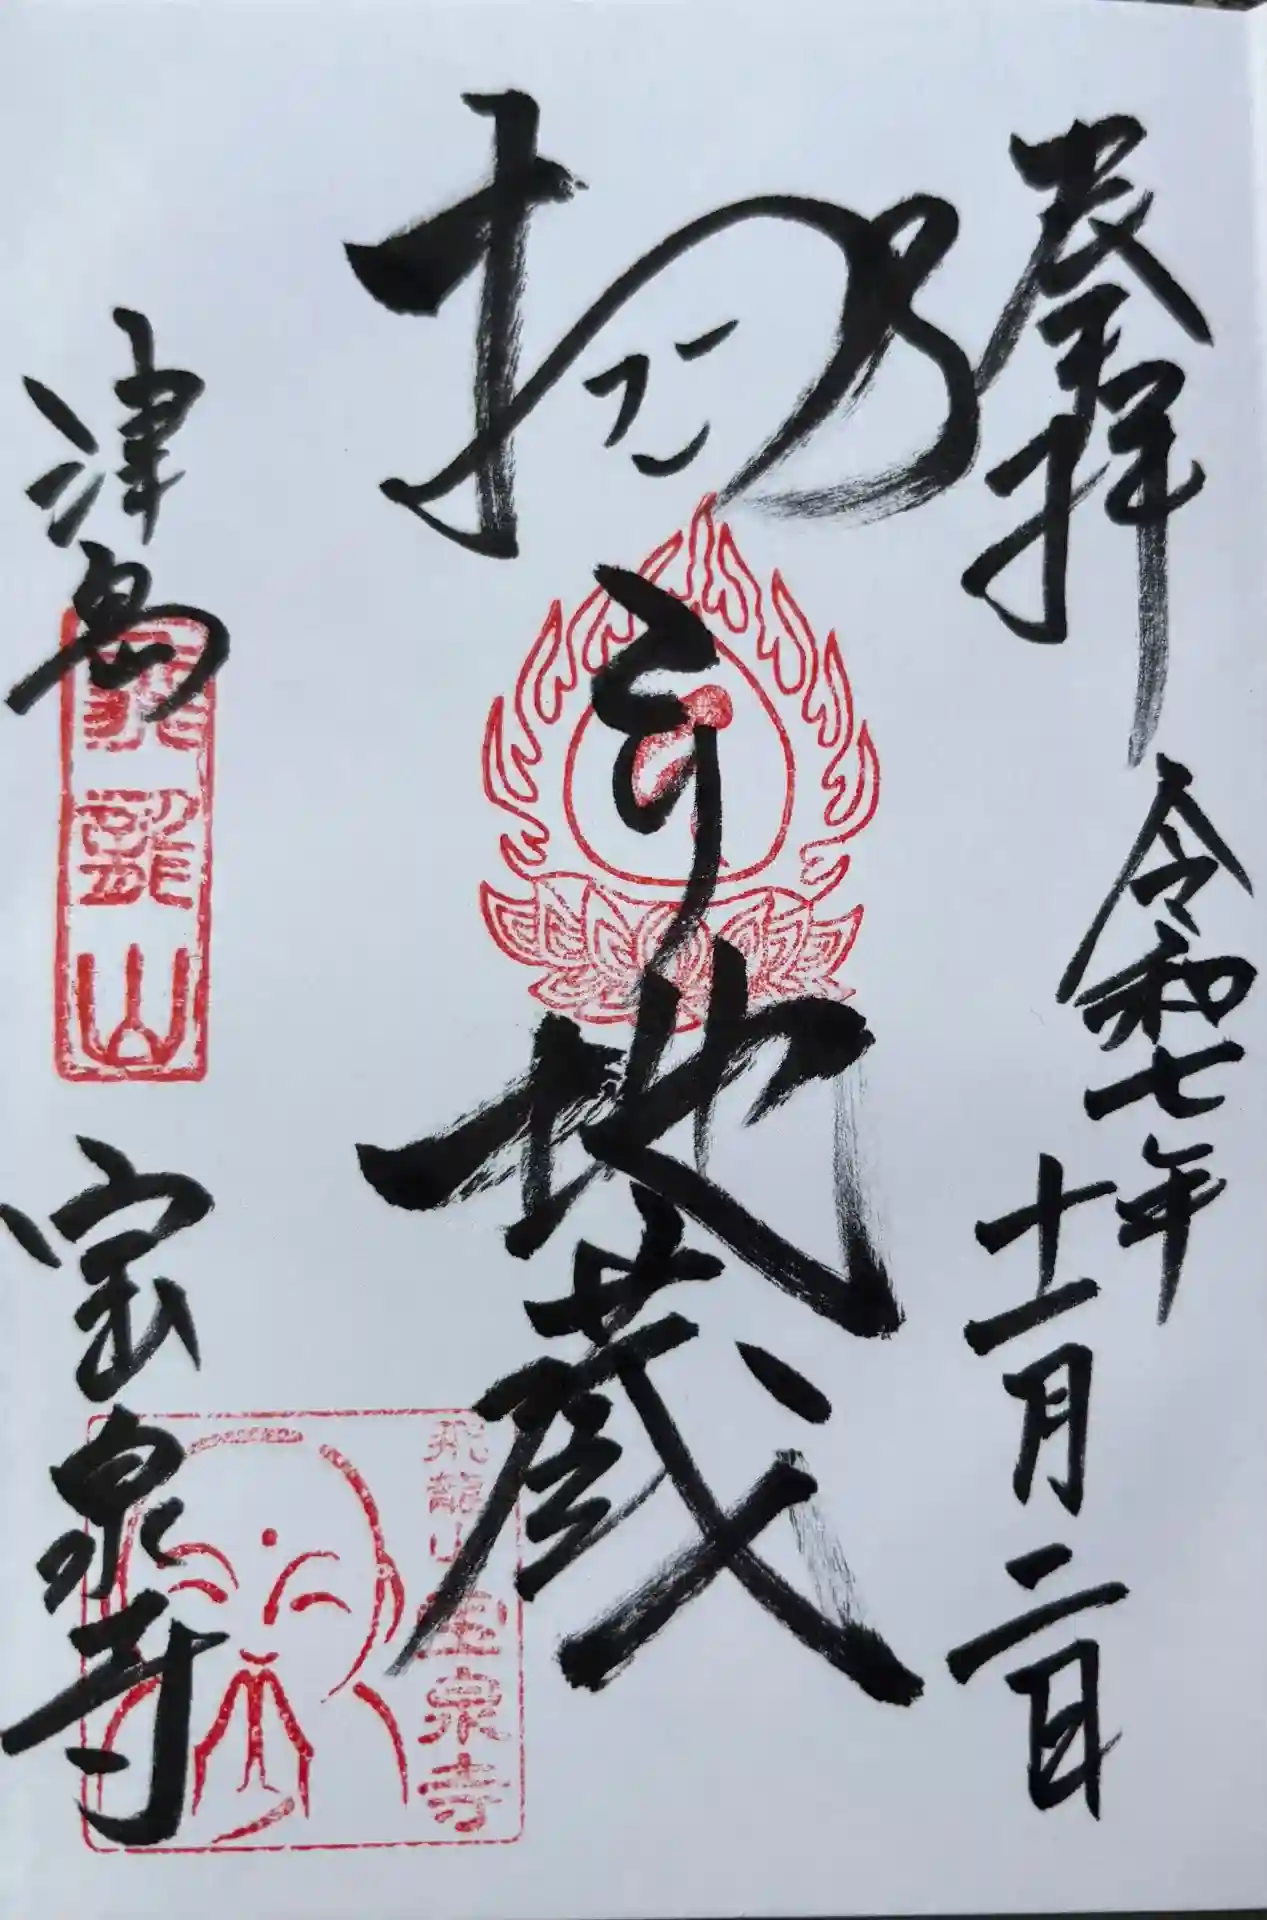 奉拝
令和七年
十一月二日
地蔵
津島
飛龍山
宝泉寺
飛龍山
宝泉寺